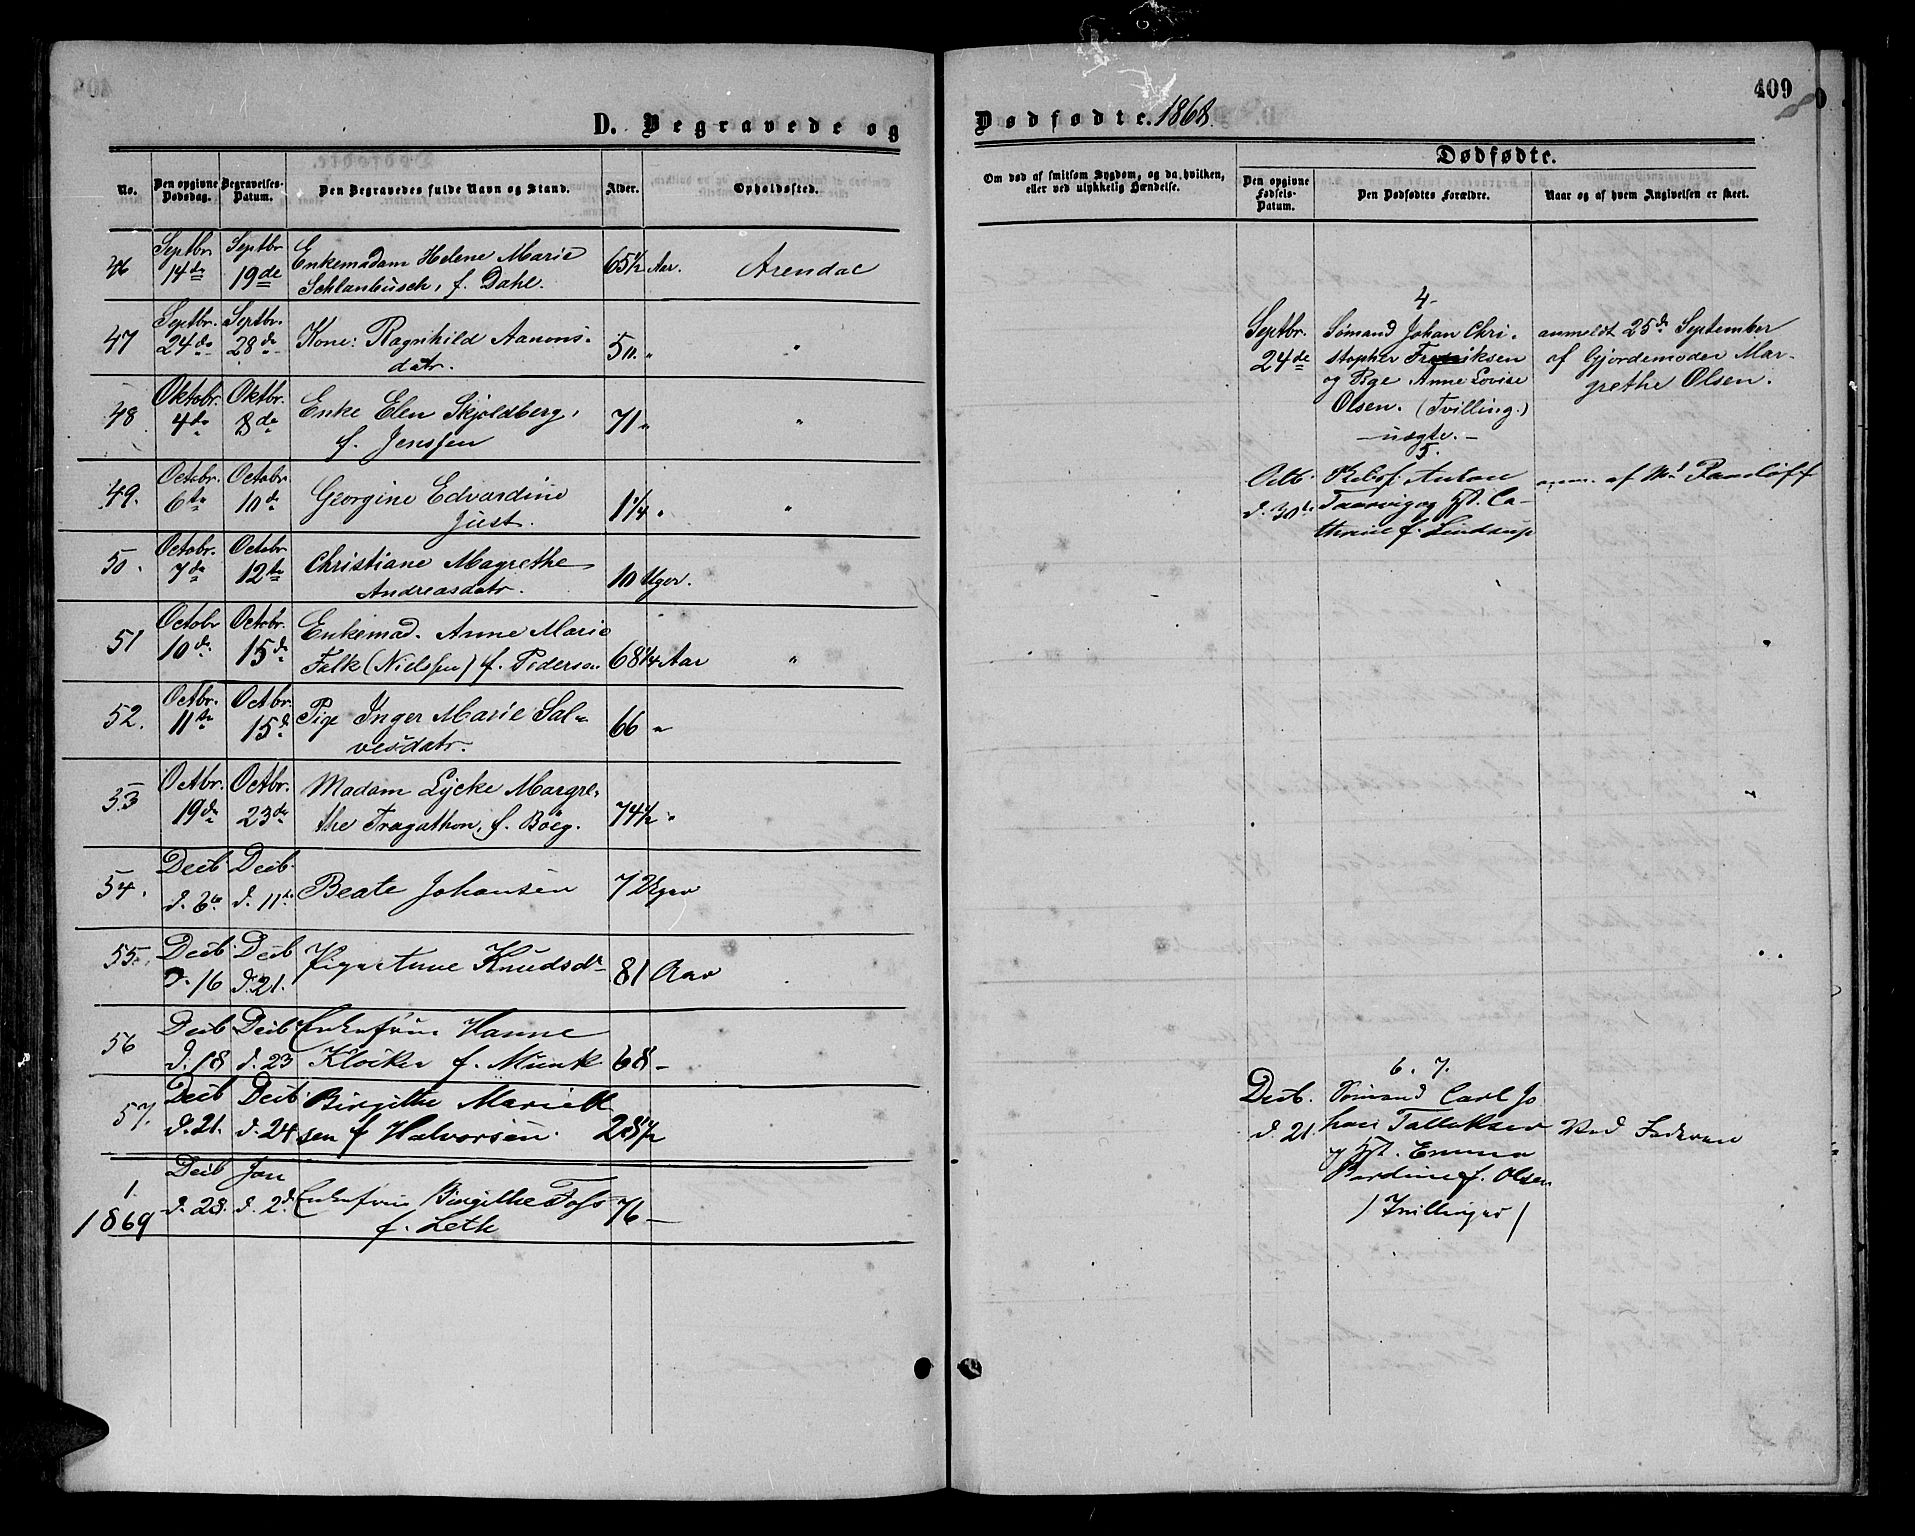 D. Begravede og
No.
Den opgivne Dødsdag.
Begravelses-Datum.
Den Begravedes fulde Navn og Stand.
Alder.
Opholdssted.
46 Septbr 14de Septbr 19de Enkemadam Helene Marie 65½ Aar. Arendal
Schlanbusch, f. Dahl.
47 Septbr. 24de Septbr. 28de Kone: Ragnhild Aanons- 50. " "
datr.
48 Oktobr. 4de Oktbr. 8de Enke Elen Skjoldberg, 71 " "
f. Jenssen
49. Octobr. 6te Octobr. 10de Georgine Edvardine 1¼ " "
Juest.
50. Octobr. 7de Octobr 12te Christiane Magrethe 10 Uger.
Andreasdatr.
51 Octobr 10de Octobr. 15de Enkemad. Anne Marie "
Falk (Nielssen) f. Pedersen 68¼ Aar "
52. Octbr. 11te Octbr. 15d Pige Inger Marie Sal- 66 "
vesdatr.
53 Octbr. 19de Octbr. 23de Madam Lycke Margre-
the Tragathon, f. Böeg. 74½ "
54. Decb. d. 6te Decb. d. 11te Beate Johansen 7 Uger
55. Decb. d. 16 Decb d. 21. Pige Anne Knudsdr 81 Aar
56 Decb d. 18 Decb d. 23 Enkefrue Hanne
Klöcker f. Munk 68 -
57. Decb d. 21. Decb d. 24 Birgithe Marie
sen f Halvorsen.
1. Decb d. 28. Jan d. 2d. Enkefrue Birgithe Foss 76 -
1869 f. Leth
409
Dødfødte. 1868.
Om død af smitsom Sygdom, og da, hvilken,
eller ved ulykkelig Hændelse.
Dødfødte.
Den opgivne Fødsels-Datum.
Den Dødfødtes Forældre.
Naar og af hvem Angivelsen er skeet.
4.
Septbr. 24de Sømand Johan Chri- anmeldt 25de September
stopher Fredriksen af Gjordemoder Mar-
og Pige Anne Lovise grethe Olsen.
Olsen. (Tvilling.)
- uægte. -
5.
Octb. d. 30te Anton anm. af
og Hst. Ca-
thrine f. Lindrup
6. 7.
Decb. d. 21. Sømand Carl Jo
han Tallaksen Ved Faderen
og Hst. Emma
f. Olsen
/ Tvillinger /